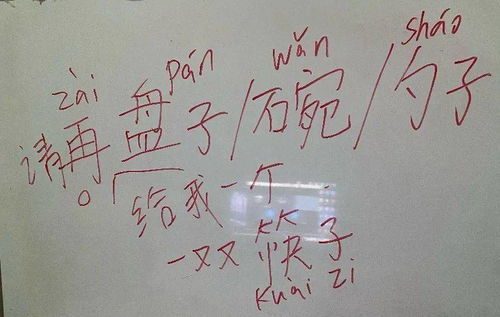 zài pán wǎn sháo
请再盘子/碗/勺子
给我一个
一双筷子
kuài zi